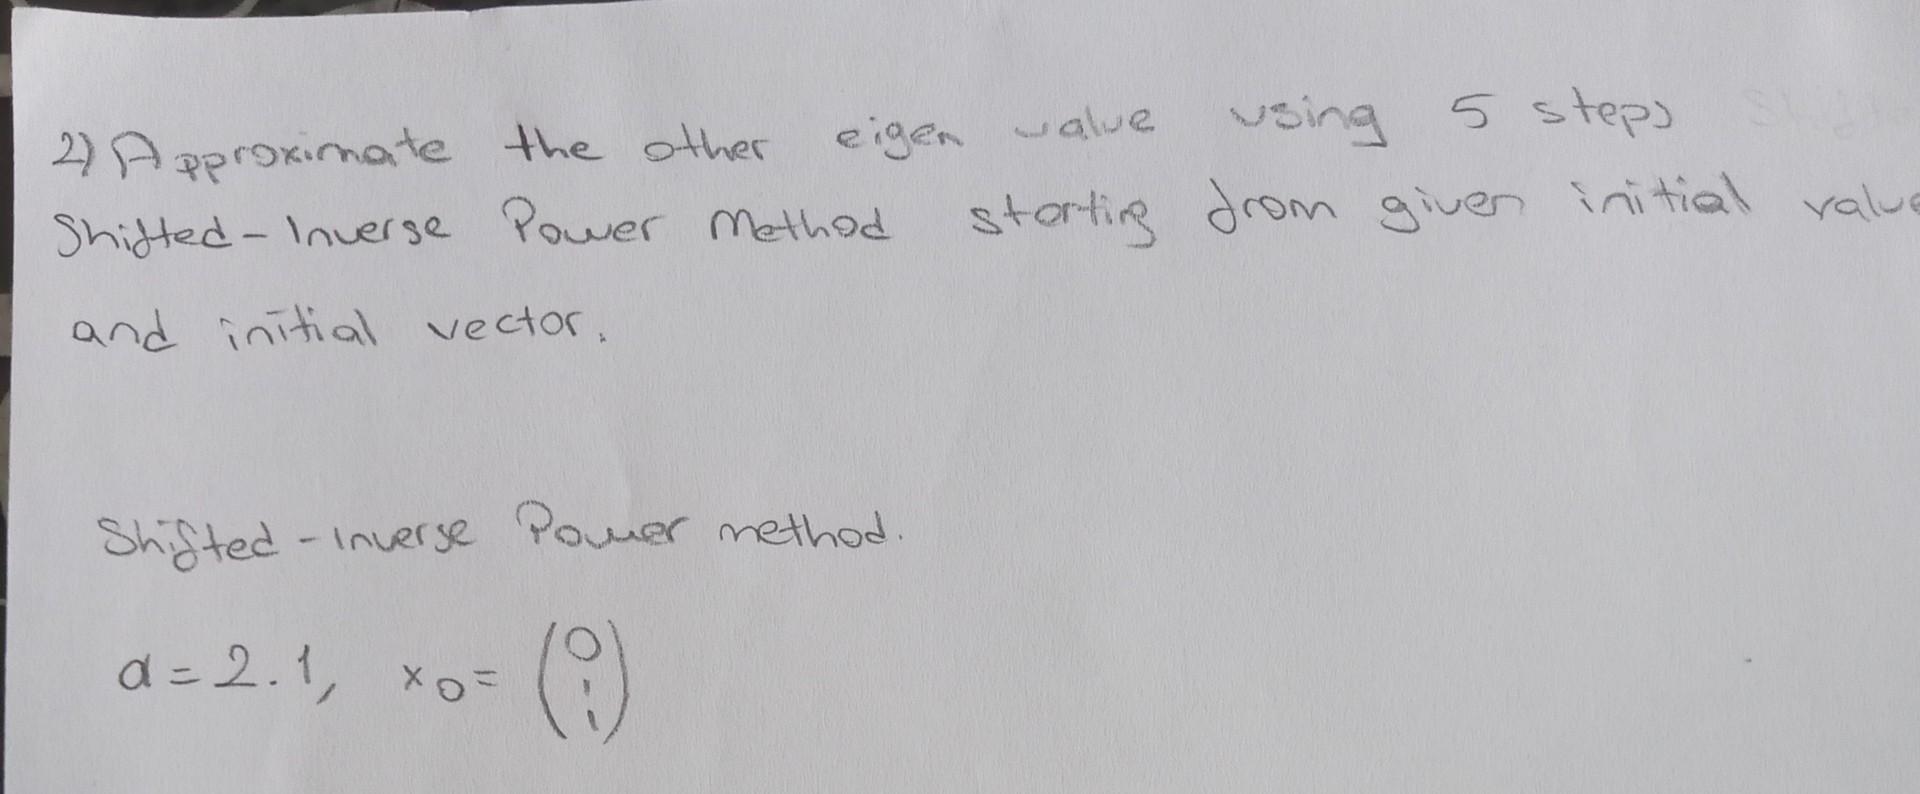 2) Approximate the other eigen value using 5 steps
Shifted-Inverse Power Method starting from given initial value
and initial vector.
Shifted-Inverse Power method.
α=2.1, x₀= (0
1
1)